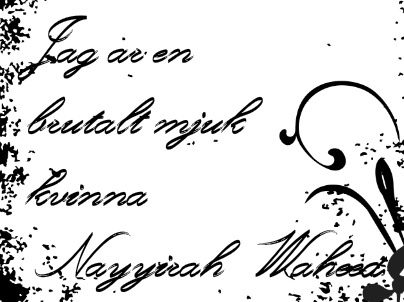 Jag är en
brutalt mjuk
kvinna
Nayyirah Waheed